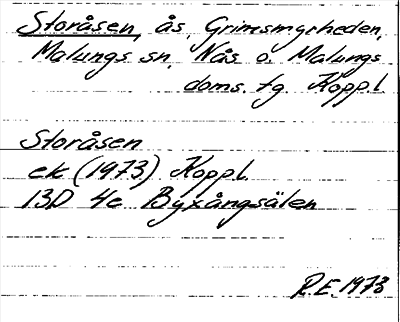 Storåsen, ås, Grimsmyrheden,
Malungs sn, Nås o. Malungs
doms. tg Koppl.
Storåsen
ek (1973) Koppl.
13D 4e Byxångsälen
R.E. 1973